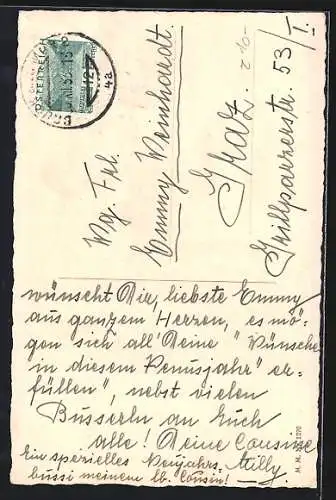 ÖSTERREICH
12
4a
Wg. Frl.
Emmy Weinhardt.
Graz.
Grillparzerstr. 53/I.
wünscht Dir, liebste Emmy
aus ganzem Herzen, es mö-
gen sich all' Deine "Wünsche
in diesem Venusjahr" er-
füllen", nebst vielen
Busserln an Euch
alle! Deine Cousine
Milly
Ein spezielles Neujahrs-
bussi meinem lb. Cousin!